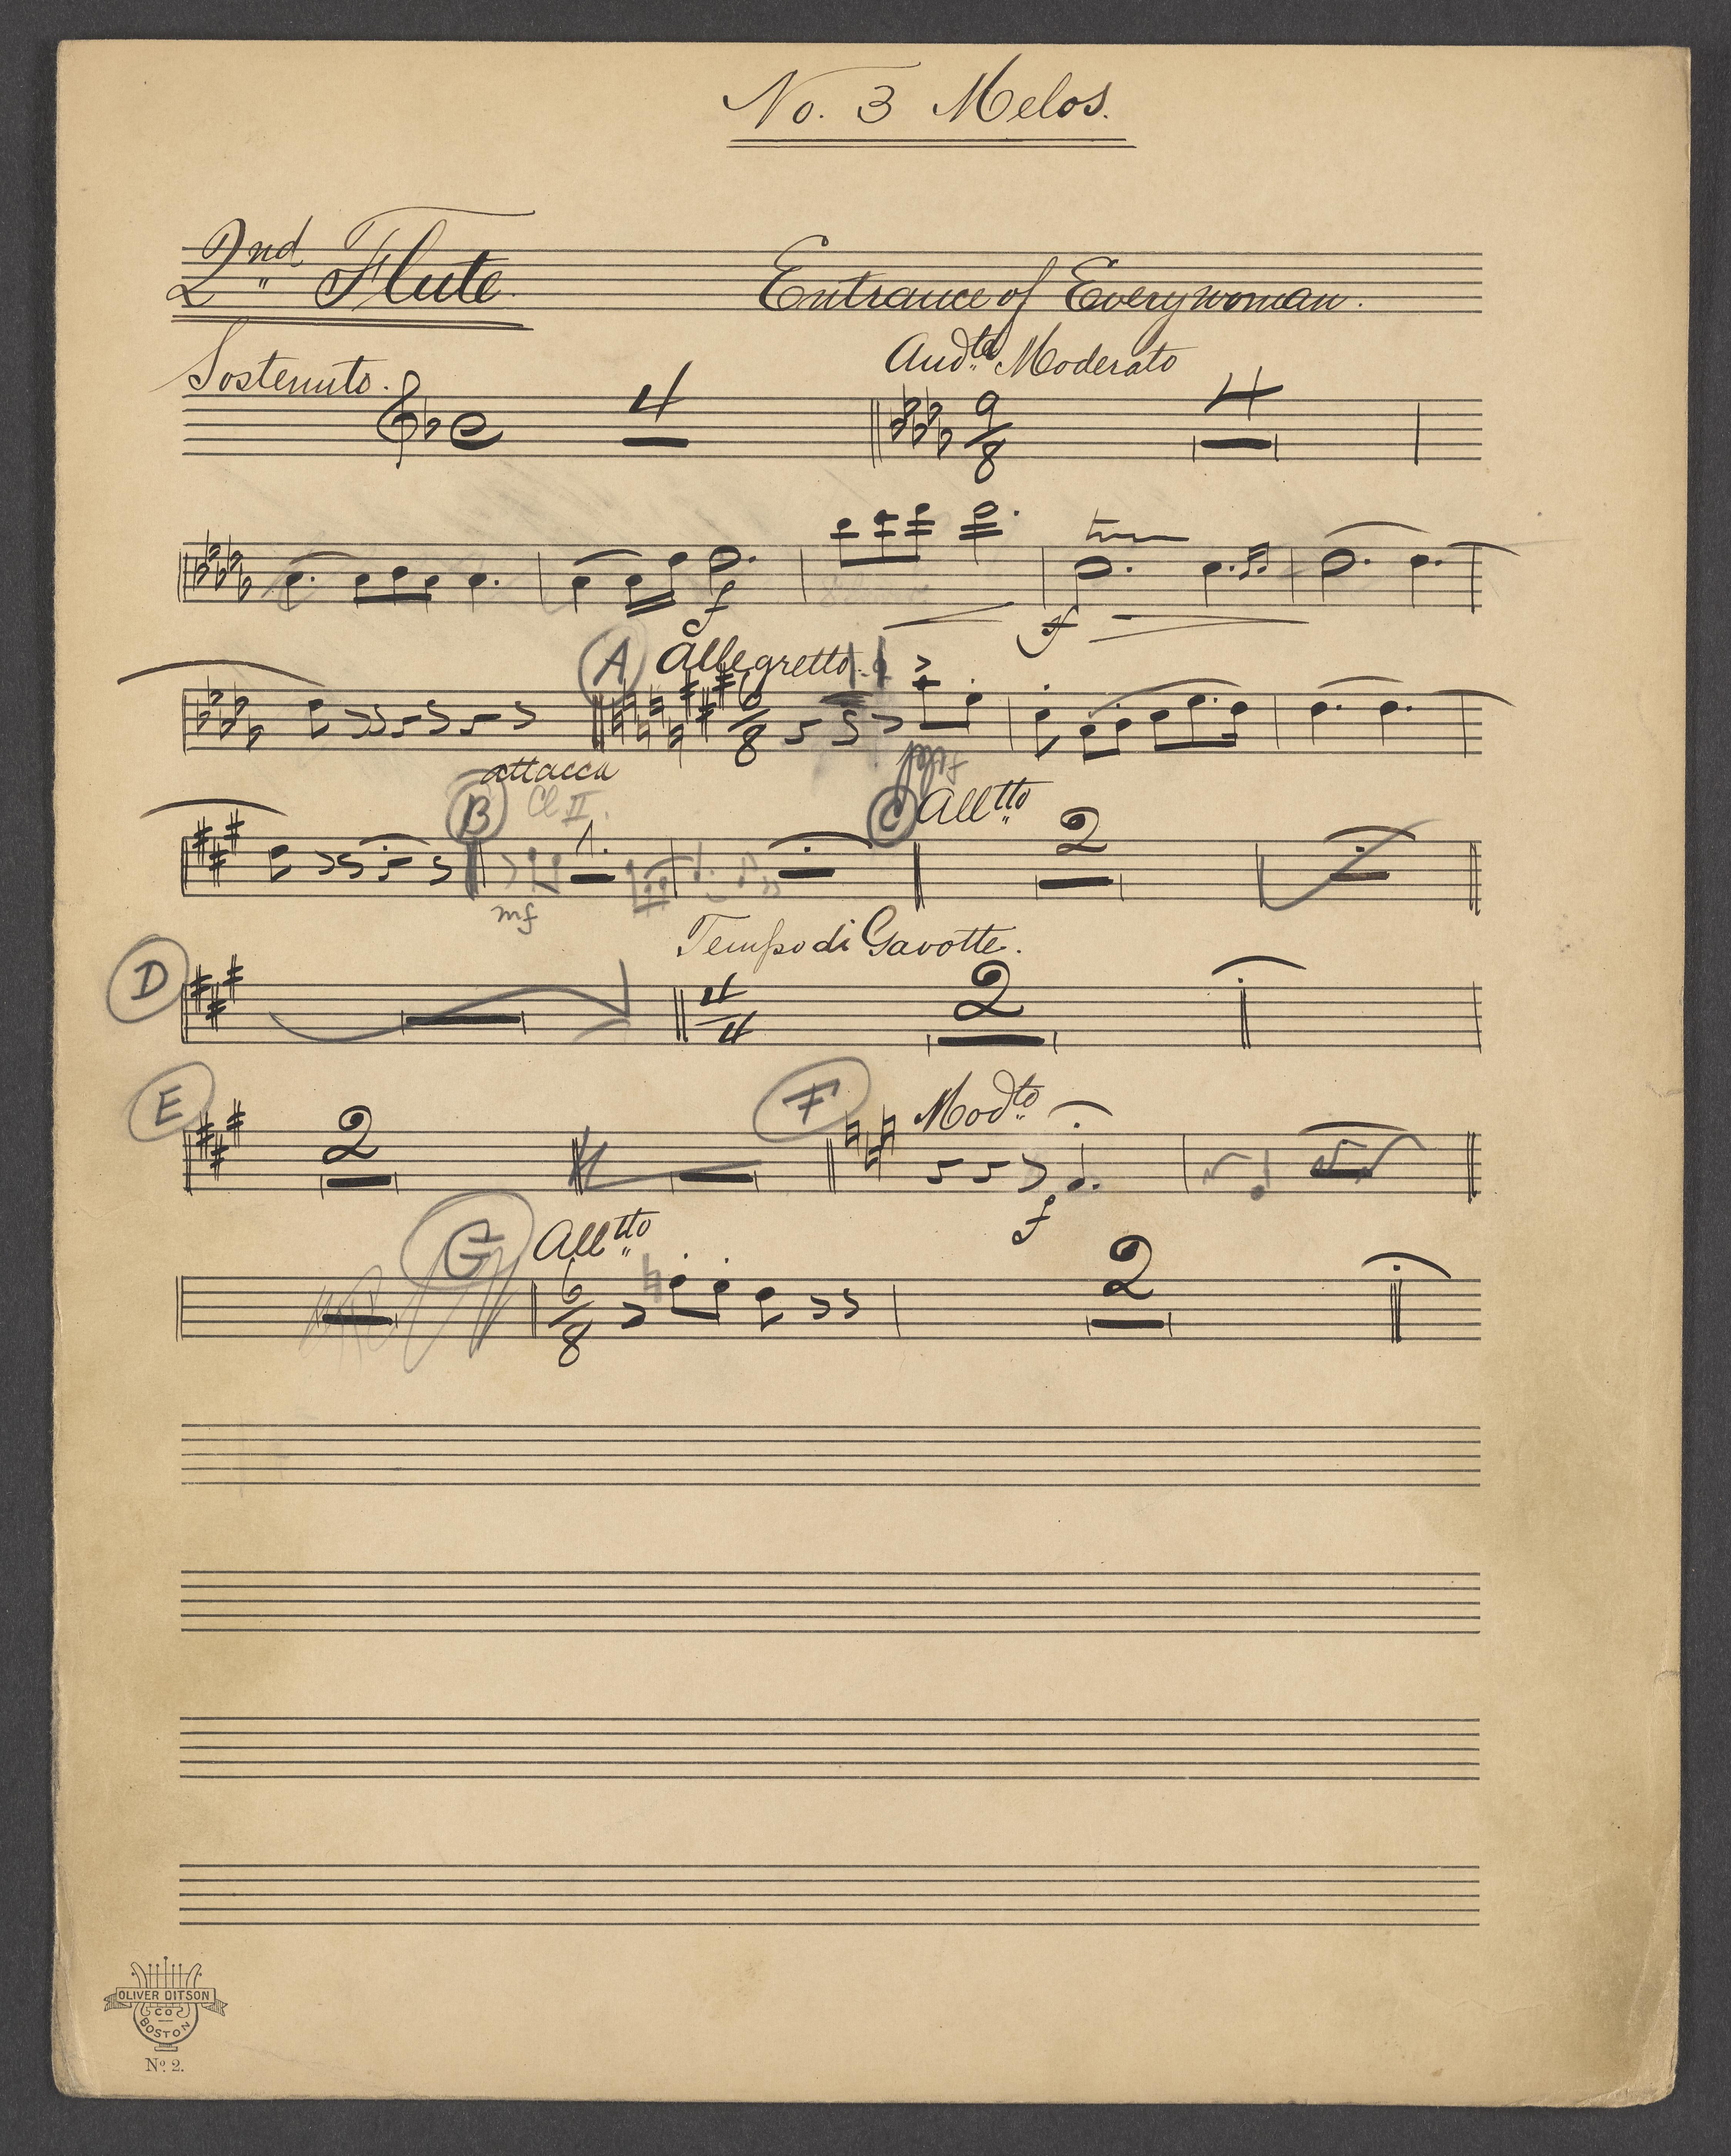 No. 3 Melos.
2nd Flute. Entrance of Everywoman.
Sostenuto. Andte Moderato
4 9/8 4
f f
A Allegretto.
6/8
attacca mf
B Cl II. C Alltto
1. 2
mf
Tempo di Gavotte.
D 4/4 2
E 2 F Modto
f
G Alltto
6/8 2
OLIVER DITSON
CO
BOSTON
No. 2.